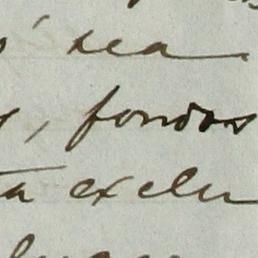 sea
, fondos
a exclu